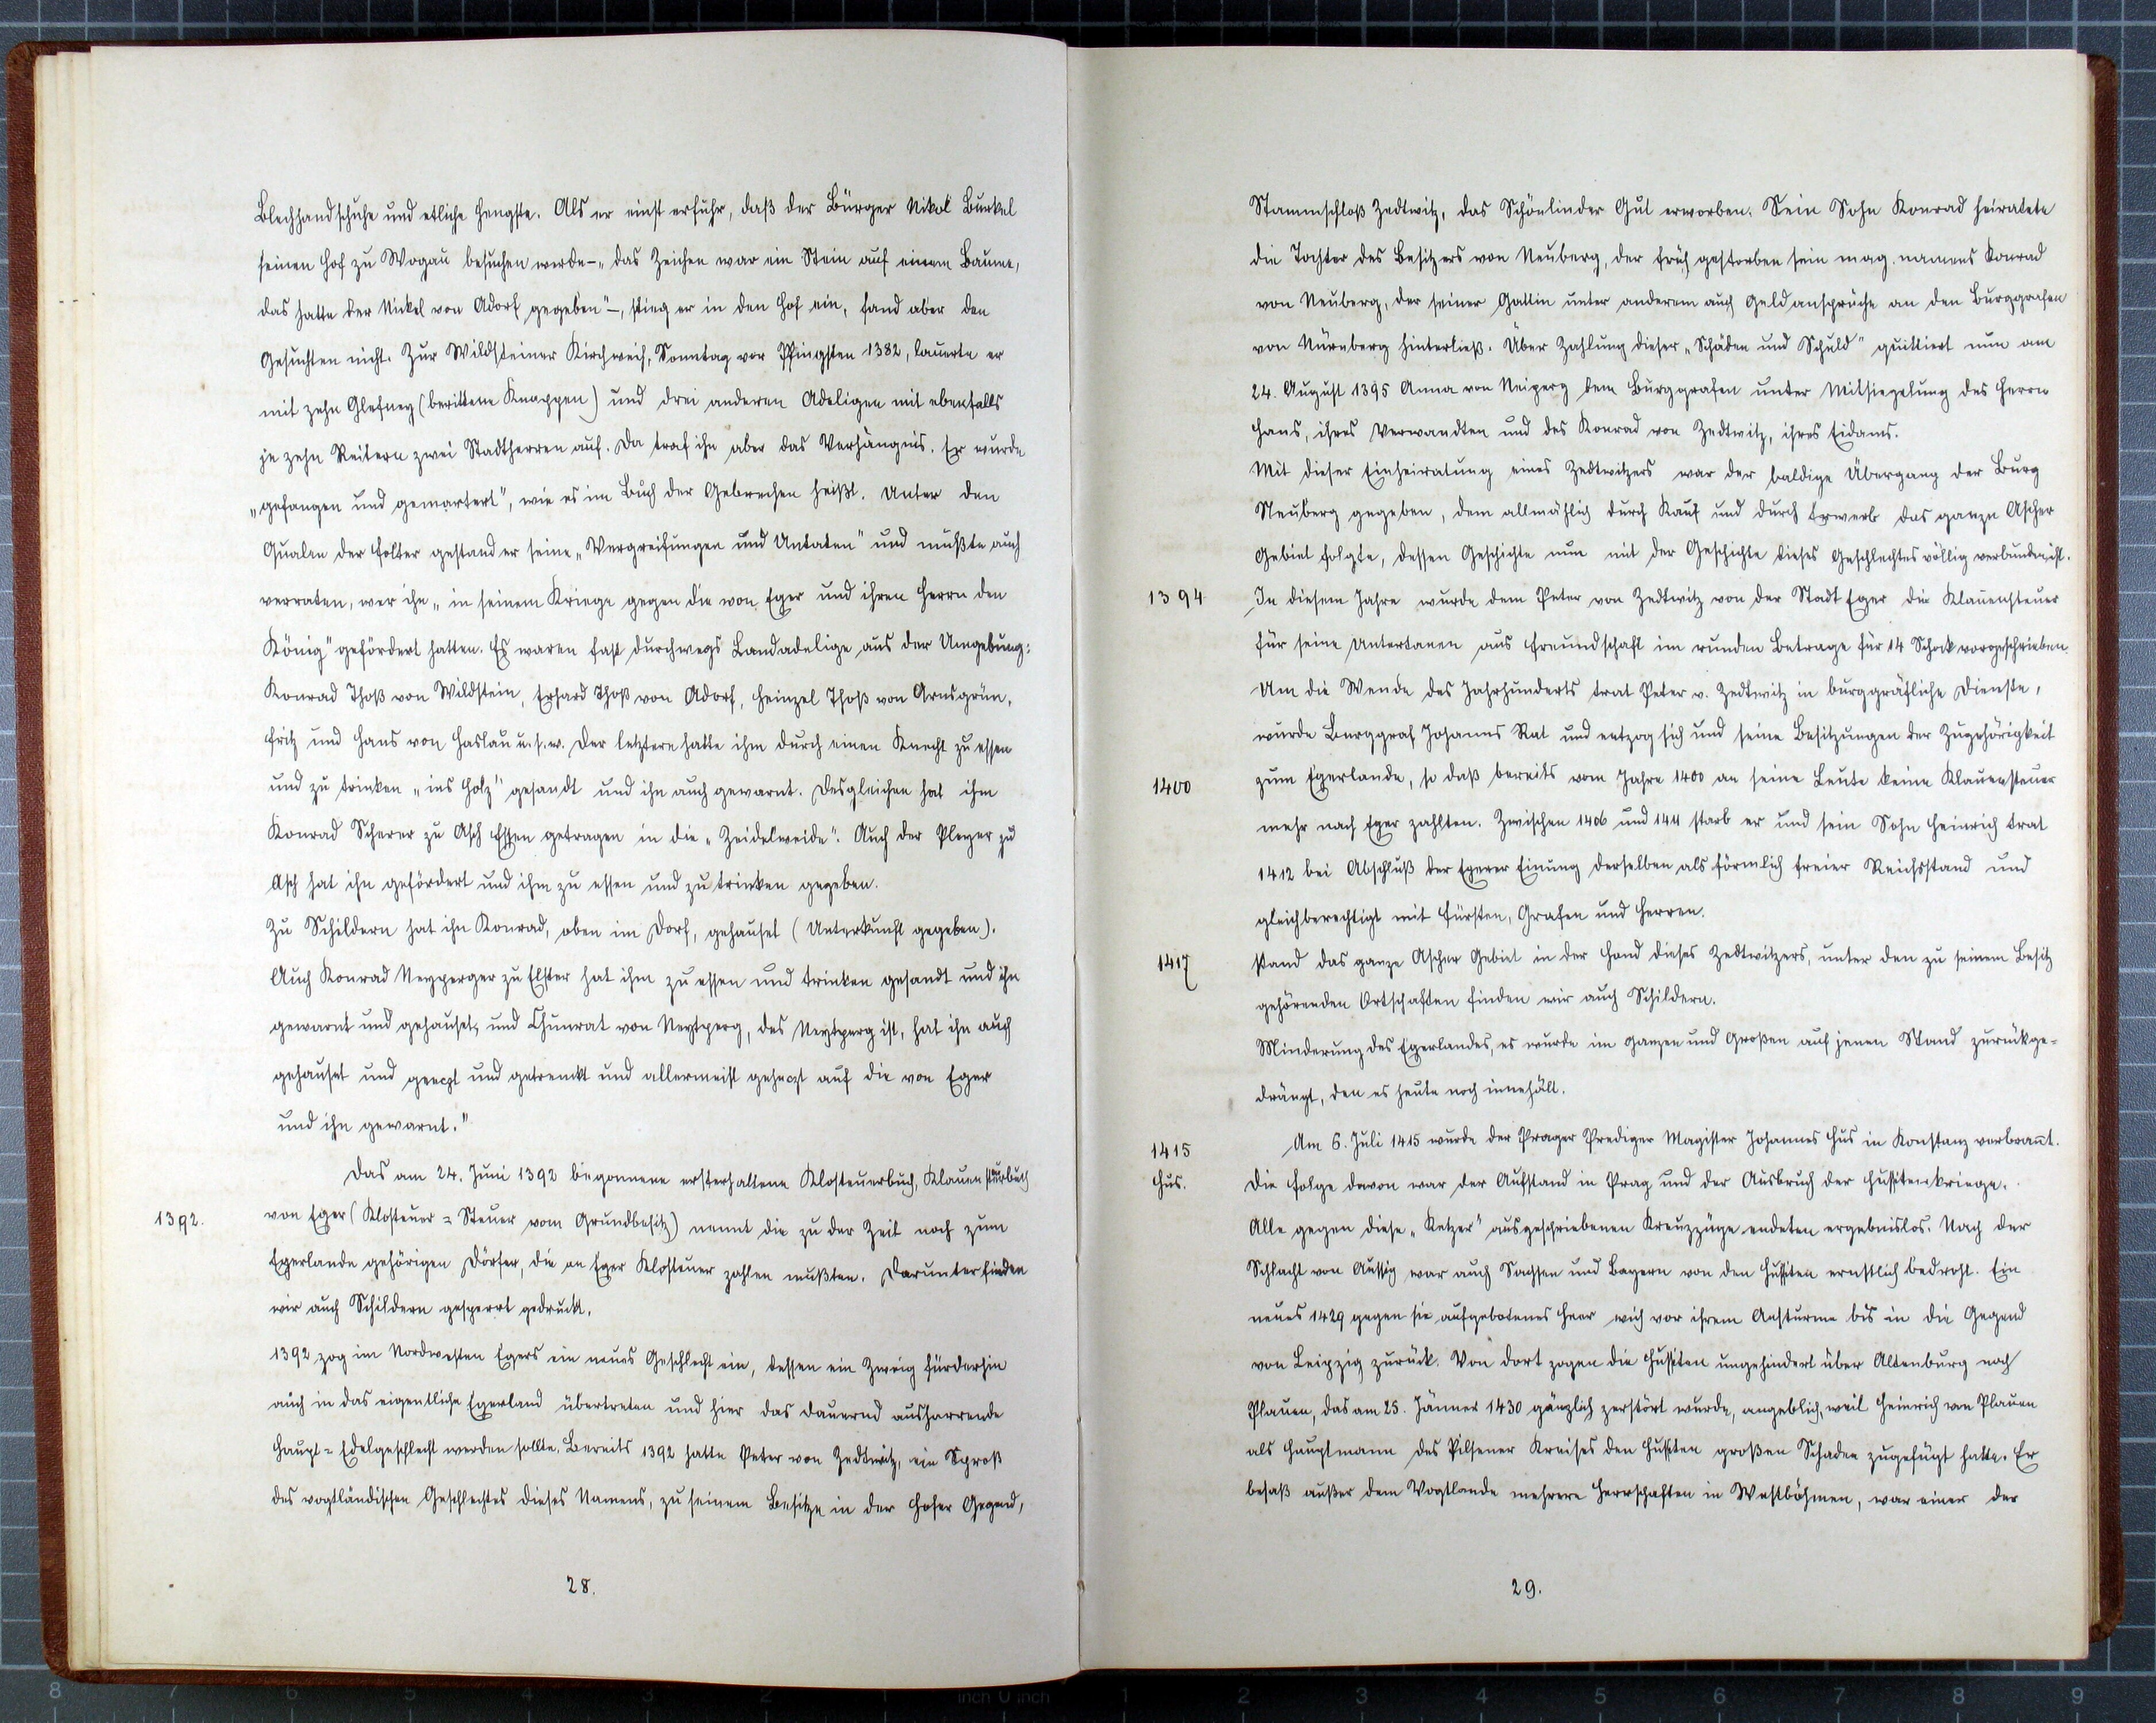 Blechhandschuhe und etliche Hengste. Als er einst erfuhr, daß der Bürger Nikol Burkel
seinen Hof zu Wogau besuchen werde – „das Zeichen war ein Stein auf einem Baume,
das hatte der Nickel von Adorf gegeben“ –, stieg er in den Hof ein, fand aber den
Gesuchten nicht. Zur Wildsteiner Kirchweih, Sonntag vor Pfingsten 1382, lauerte er
mit zehn Glefney (berittene Knappen) und drei anderen Adeligen mit ebenfalls
je zehn Reitern zwei Stadtherren auf. Da traf ihn aber das Verhängnis. Er wurde
„gefangen und gemartert“, wie es im Buch der Gebrechen heißt. Unter den
Qualen der Folter gestand er seine „Vergreifungen und Untaten“ und mußte auch
verraten, wer ihn „in seinem Kriege gegen die von Eger und ihren Herrn den
König“ gefördert hatten. Es waren fast durchwegs Landadelige aus der Umgebung:
Konrad Thoß von Wildstein, Erhard Thoß von Adorf, Heinzel Thoß von Arnsgrün,
Fritz und Hans von Haslau u.s.w. Der letztere hatte ihm durch einen Knecht zu essen
und zu trinken „ins Holz“ gesandt und ihn auch gewarnt. Desgleichen hat ihm
Konrad Scherer zu Asch Essen getragen in die „Zeidelweide“. Auch der Pleyer zu
Asch hat ihn gefördert und ihm zu essen und zu trinken gegeben.
Zu Schildern hat ihn Konrad, oben im Dorf, gehauset (Unterkunft gegeben).
Auch Konrad Neyperger zu Elster hat ihm zu essen und trinken gesandt und ihn
gewarnt und gehauset, und Chunrat von Neytperg, des Neytperg ist, hat ihn auch
gehauset und geeczt und getrenckt und allermeist geheczt auf die von Eger
und ihn gewarnt.“
Das am 24. Juni 1392 begonnene ersterhaltene Klosteuerbuch, Klauensteuerbuch
1392. von Eger (Klosteuer = Steuer vom Grundbesitz) nennt die zu der Zeit noch zum
Egerlande gehörigen Dörfer, die an Eger Klosteuer zahlen mußten. Darunter finden
wir auch Schildern gesperrt gedruckt.
1392 zog im Nordwesten Egers ein neues Geschlecht ein, dessen ein Zweig fürderhin
auch in das eigentliche Egerland übertreten und hier das dauernd ausharrende
Haupt=Edelgeschlecht werden sollte. Bereits 1392 hatte Peter von Zedtwitz, ein Sproß
des vogtländischen Geschlechtes dieses Namens, zu seinem Besitze in der Hofer Gegend,
28.
Stammschloß Zedtwitz, das Schönlinder Gut erworben. Sein Sohn Konrad heiratete
die Tochter des Besitzers von Neuberg, der früh gestorben sein mag, namens Konrad
von Neuberg, der seiner Gattin unter anderem auch Geldansprüche an den Burggrafen
von Nürnberg hinterließ. Über Zahlung dieser „Schäden und Schuld“ quittiert nun am
24. August 1395 Anna von Neiperg dem Burggrafen unter Mitsiegelung des Herrn
Hans, ihres Verwandten und des Konrad von Zedtwitz, ihres Eidams.
Mit dieser Einheiratung eines Zedtwitzers war der baldige Übergang der Burg
Neuberg gegeben, dem allmählich durch Kauf und durch Erwerb das ganze Ascher
Gebiet folgte, dessen Geschichte nun mit der Geschichte dieses Geschlechtes völlig verbunden ist.
1394 In diesem Jahre wurde dem Peter von Zedtwitz von der Stadt Eger die Klauensteuer
für seine Untertanen aus Freundschaft im runden Betrage für 14 Schock vorgeschrieben.
Um die Wende des Jahrhunderts trat Peter v. Zedtwitz in burggräfliche Dienste,
wurde Burggraf Johanns Rat und entzog sich und seine Besitzungen der Zugehörigkeit
1400 zum Egerlande, so daß bereits vom Jahre 1400 an seine Leute keine Klauensteuer
mehr nach Eger zahlten. Zwischen 1406 und 1411 starb er und sein Sohn Heinrich trat
1412 bei Abschluß der Egerer Einung derselben als förmlich freier Reichsstand und
gleichberechtigt mit Fürsten, Grafen und Herren.
1417 stand das ganze Ascher Gebiet in der Hand dieses Zedtwitzers, unter den zu seinem Besitz
gehörenden Ortschaften finden wir auch Schildern.
Minderung des Egerlandes, es wurde im ganzen und Großen auf jenen Stand zurückge-
drängt, den es heute noch innehält.
1415 Am 6. Juli 1415 wurde der Prager Prediger Magister Johannes Hus in Konstanz verbrannt.
Hus. Die Folge davon war der Aufstand in Prag und der Ausbruch der Hussitenkriege.
Alle gegen diese „Ketzer“ ausgeschriebenen Kreuzzüge endeten ergebnislos. Nach der
Schlacht von Aussig war auch Sachsen und Bayern von den Hussiten ernstlich bedroht. Ein
neues 1429 gegen sie aufgebotenes Heer wich vor ihrem Ansturme bis in die Gegend
von Leipzig zurück. Von dort zogen die Hussiten ungehindert über Altenburg nach
Plauen, das am 25. Jänner 1430 gänzlich zerstört wurde, angeblich, weil Heinrich von Plauen
als Hauptmann des Pilsener Kreises den Hussiten großen Schaden zugefügt hatte. Er
besaß außer dem Vogtlande mehrere Herrschaften in Westböhmen, war einer der
29.
8 7 6 5 4 3 2 1 inch 0 inch 1 2 3 4 5 6 7 8 9